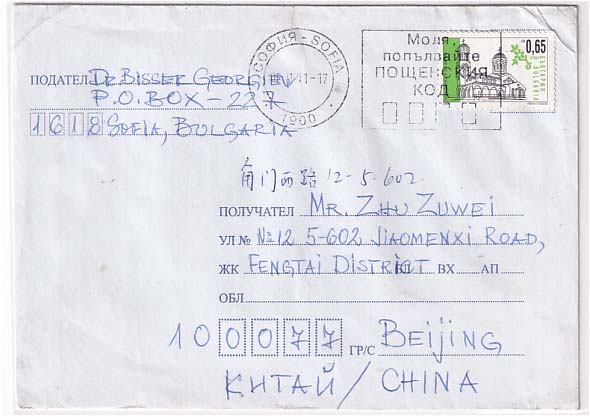 СОФИЯ - SOFIA
-17
1900
Моля,
попълвайте
ПОЩЕНСКИЯ
КОД
0,65
БЪЛГАРИЯ
BULGARIA
ПОДАТЕЛ DR. BISSER GEORGIEV
P.O.BOX - 227
1618 SOFIA, BULGARIA
角门西路 12-5-602
ПОЛУЧАТЕЛ MR. ZHU ZUWEI
УЛ № №12 5-602 JIAOMENXI ROAD,
ЖК FENGTAI DISTRICT БЛ ВХ АП
ОБЛ
100077 ГР/С BEIJING
КИТАЙ / CHINA